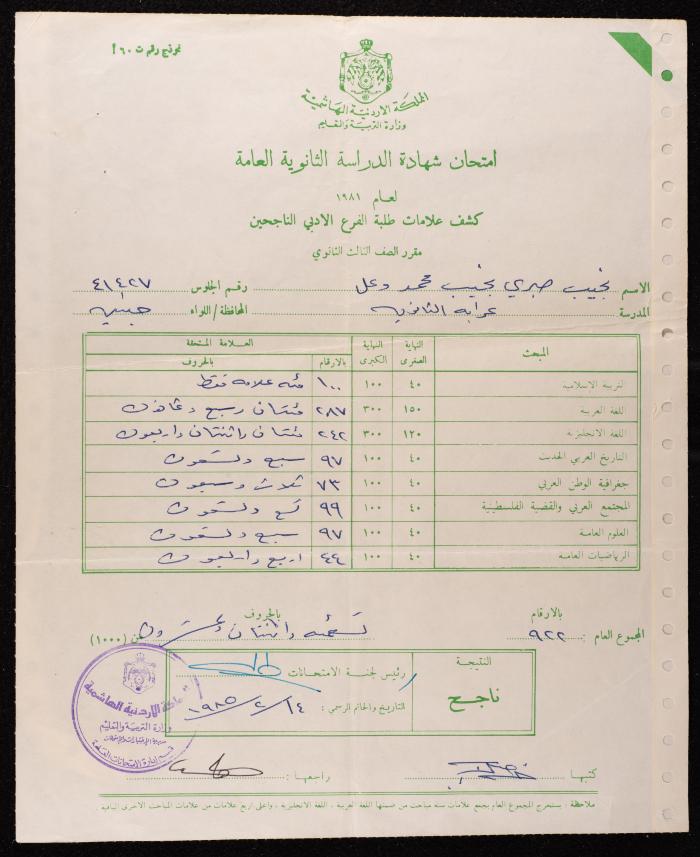 نموذج رقم ت ٦٠ أ
المملكة الاردنية الهاشمية
وزارة التربية والتعليم
امتحان شهادة الدراسة الثانوية العامة
لعام ١٩٨١
كشف علامات طلبة الفرع الادبي الناجحين
مقرر الصف الثالث الثانوي
الاسم نجيب صبري نجيب محمد وعل رقم الجلوس ٤١٤٢٧
المدرسة عرابه الثانويه المحافظة / اللواء جنين
المبحث النهاية الصغرى النهاية الكبرى العـلامـة المستحقة
بالارقام بالحروف
التربية الاسلامية ٤٠ ١٠٠ ١٠٠ مئه علامه فقط
اللغة العربية ١٥٠ ٣٠٠ ٢٨٧ مئتان وسبع وثمانون
اللغة الانجليزية ١٢٠ ٣٠٠ ٢٤٢ مئتان واثنتان واربعون
التاريخ العربي الحديث ٤٠ ١٠٠ ٩٧ سبع وتسعون
جغرافية الوطن العربي ٤٠ ١٠٠ ٧٣ ثلاث وسبعون
المجتمع العربي والقضية الفلسطينية ٤٠ ١٠٠ ٩٩ تسع وتسعون
العلوم العامة ٤٠ ١٠٠ ٩٧ سبع وتسعون
الرياضيات العامة ٤٠ ١٠٠ ٤٤ اربع واربعون
بالارقام بالحروف
المجموع العام : ٩٢٢ تسعمئه واثنتان وعشرون من (١٠٠٠)
النتيجة
ناجح
رئيس لجنة الامتحانات
التاريخ والخاتم الرسمي : ١٤/٢/١٩٨٥
المملكة الاردنية الهاشمية
وزارة التربية والتعليم
قسم إدارة الامتحانات العامة
كتبها : راجعها :
ملاحظة : يستخرج المجموع العام بجمع علامات ستة مباحث من ضمنها اللغة العربية ، اللغة الانجليزية ، واعلى اربع علامات من علامات المباحث الاخرى الباقية .